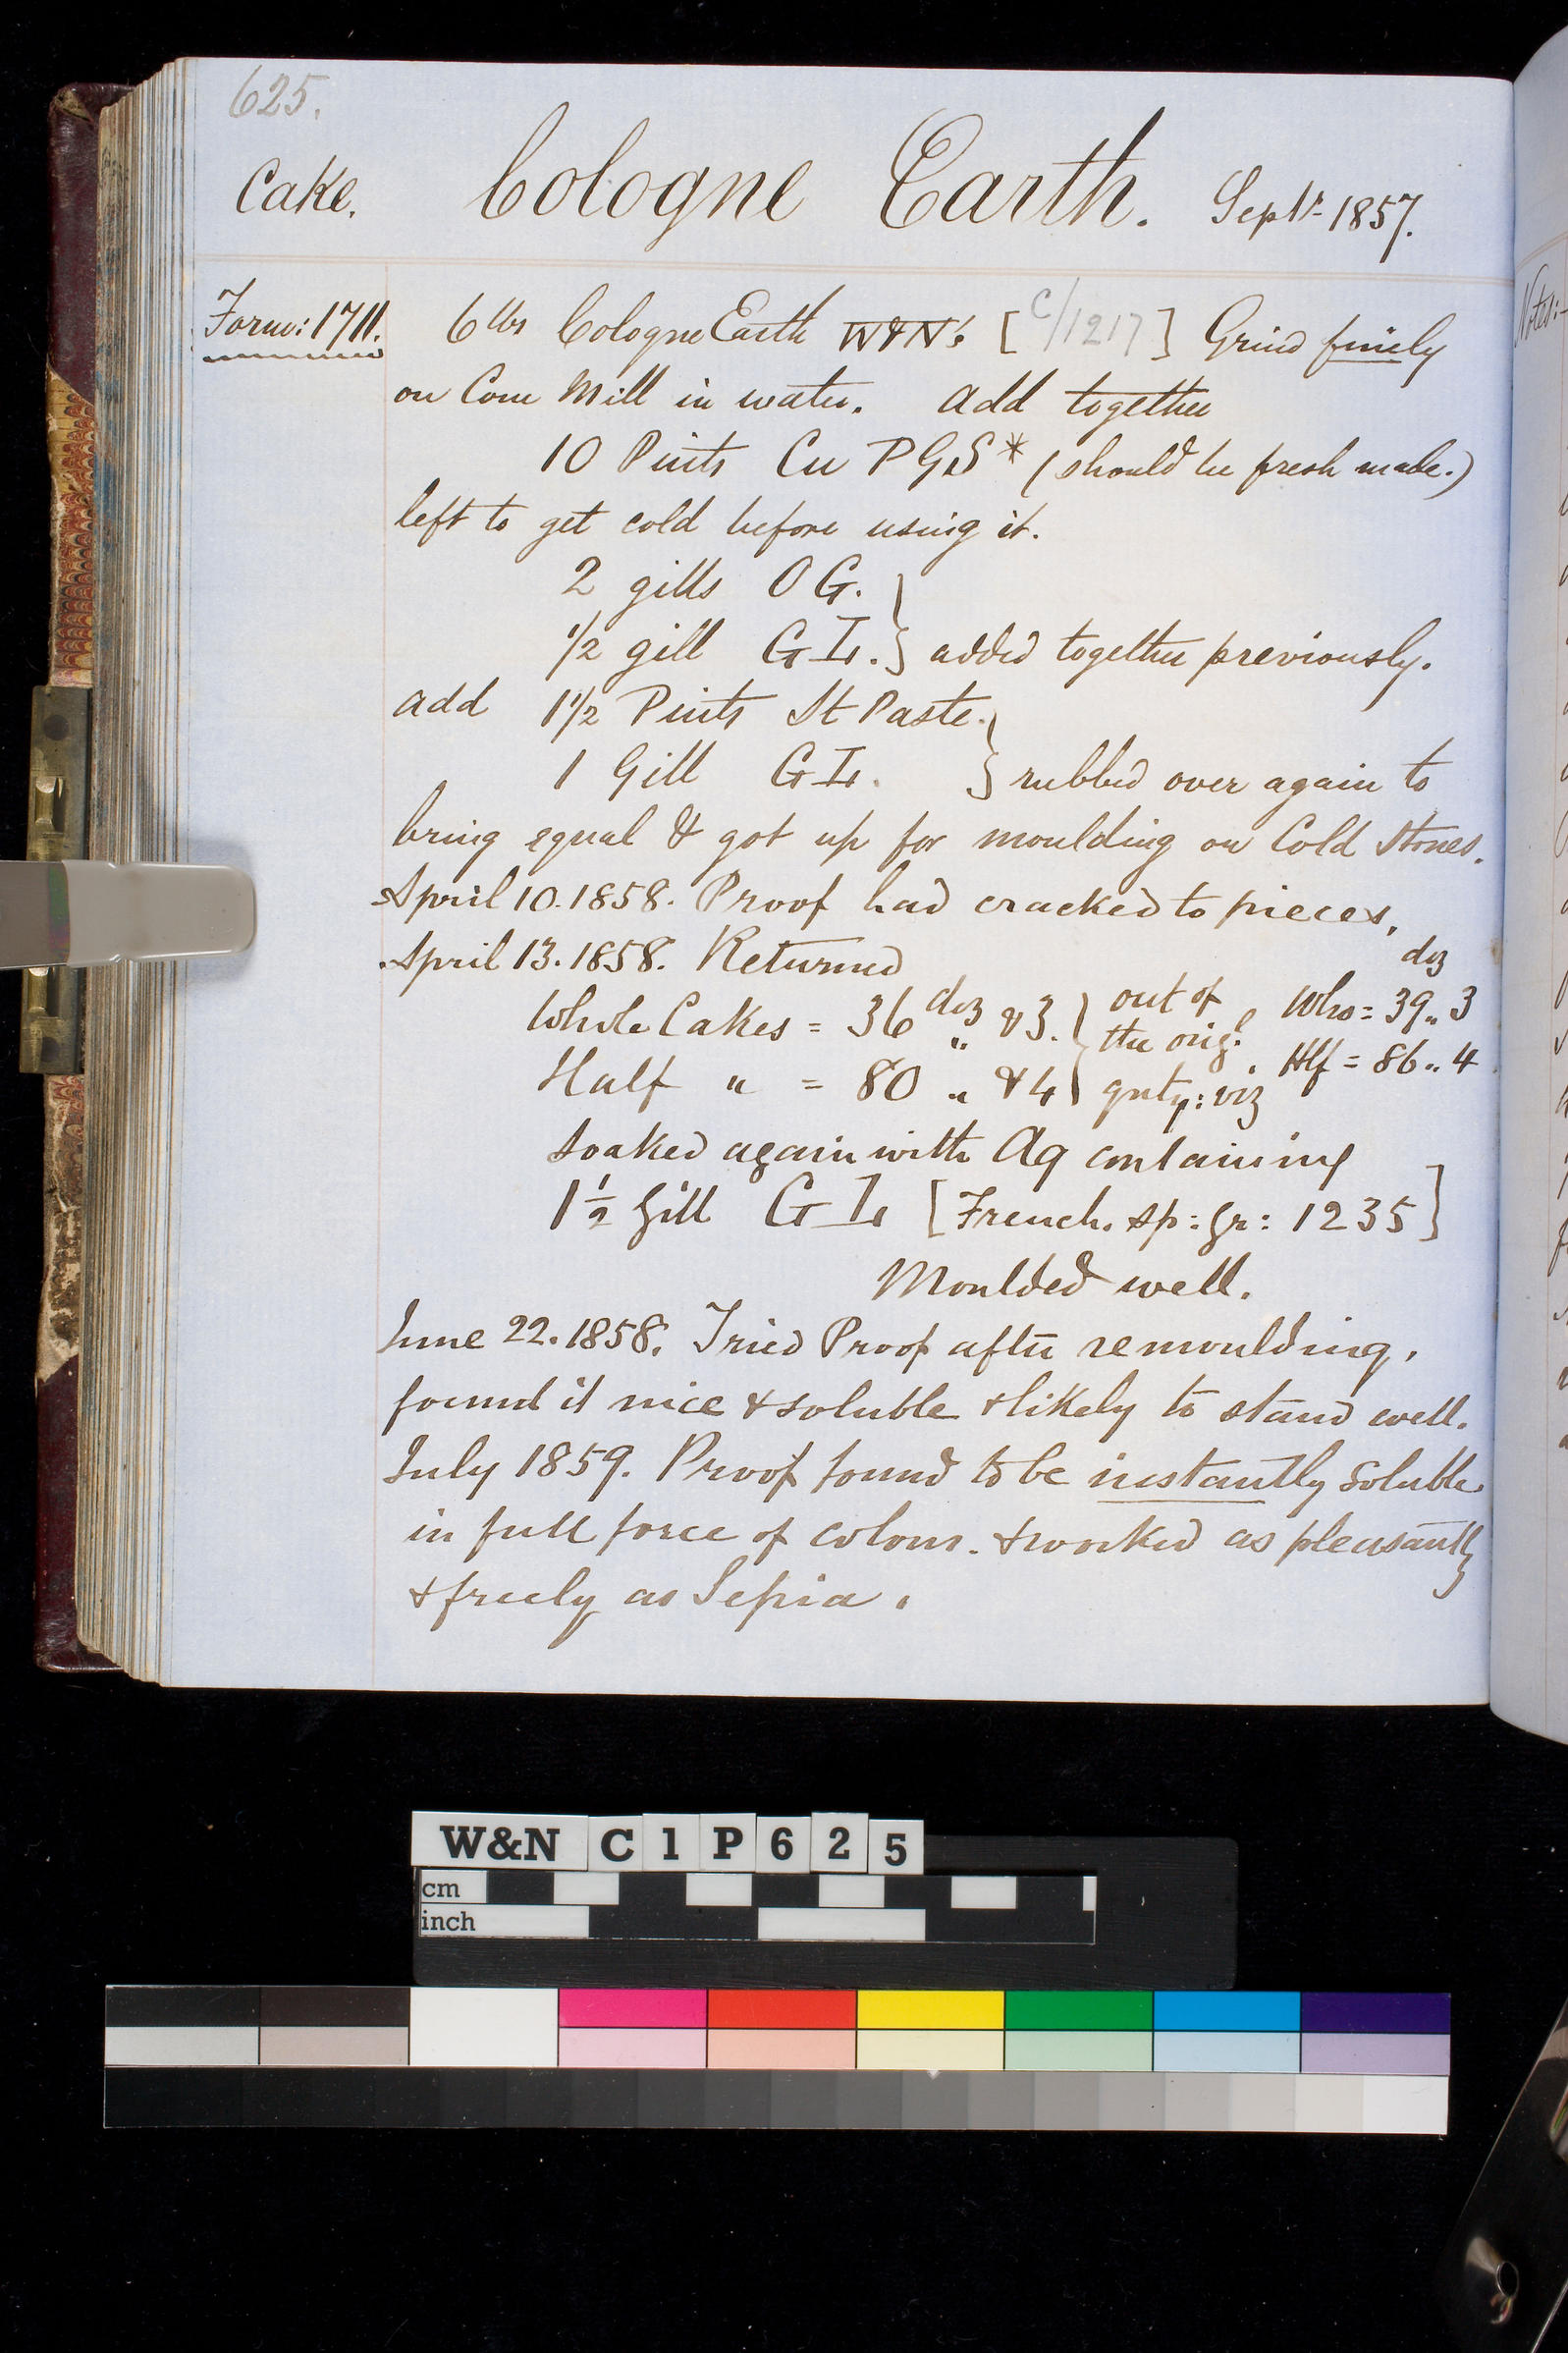 625.
Cake. Cologne Earth. Septr. 1857.
Form: 1711. 6 lbs Cologne Earth W&N's [C/1217] Grind finely
on Cone Mill in water. Add together
10 Pints Cu P G S * (should be fresh made.)
left to get cold before using it.
2 gills O G. }
1/2 gill G L. } added together previously.
add 1 1/2 Pints St Paste. }
1 Gill G L. } rubbed over again to
bring equal & got up for moulding on Cold Stones.
April 10. 1858. Proof had cracked to pieces.
April 13. 1858. Returned
Whole Cakes = 36 doz " & 3. } out of the orig:l qnty: viz doz Who = 39 " 3
Half " = 80 " & 4 } Hlf = 86 " 4
soaked again with Aq containing
1 1/2 Gill G L [French. sp: gr: 1235]
Moulded well.
June 22. 1858. Tried Proof after remoulding,
found it nice & soluble & likely to stand well.
July 1859. Proof found to be instantly soluble
in full force of colour. & worked as pleasantly
& freely as Sepia.
Notes:
W&N C 1 P 6 2 5
cm
inch